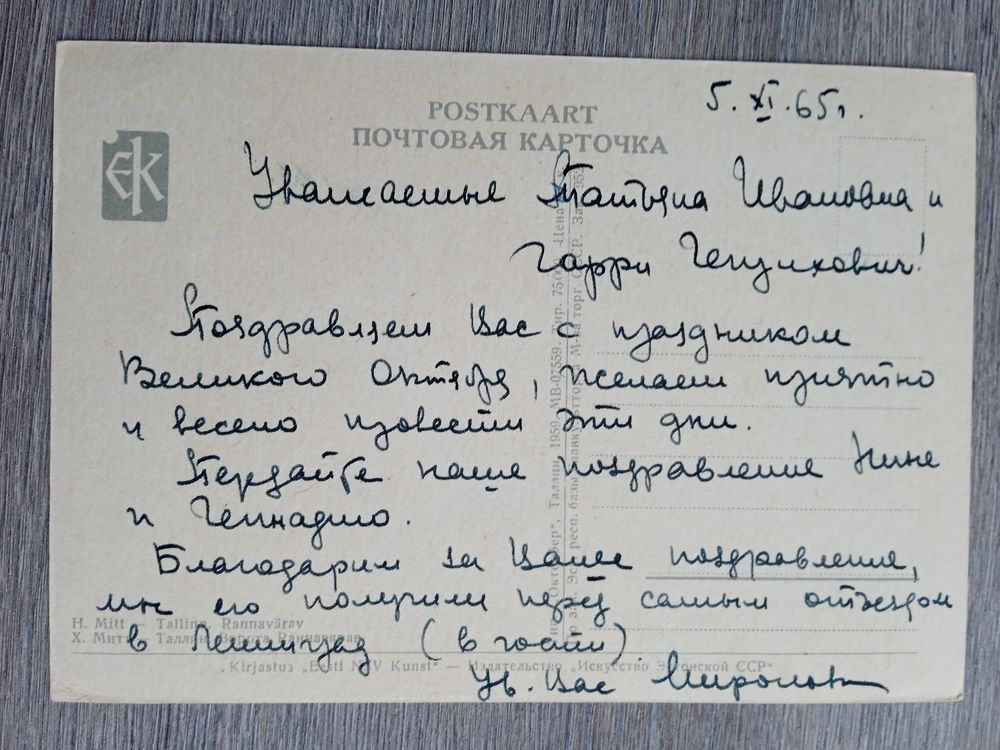 5.XI.65г.
POSTKAART
ПОЧТОВАЯ КАРТОЧКА
EK
Уважаемые Татьяна Ивановна и
Гарри Генрихович!
Поздравляем Вас с праздником
Великого Октября, желаем приятно
и весело провести эти дни.
Передайте наше поздравление Нине
и Геннадию.
Благодарим за Ваше поздравление,
мы его получили перед самым отъездом
в Ленинград (в гости).
Ув. Вас
H. Mitt — Tallinn. Rannavärav
Х. Митт — Таллин. Ворота Раннавярав
Kirjastus „Eesti NSV Kunst" — Издательство „Искусство Эстонской ССР"
Октообер", Таллин, 1959. МВ-07559. Тир. 75 000. Цена
Эст. респ. базы М-ва торг. СССР.